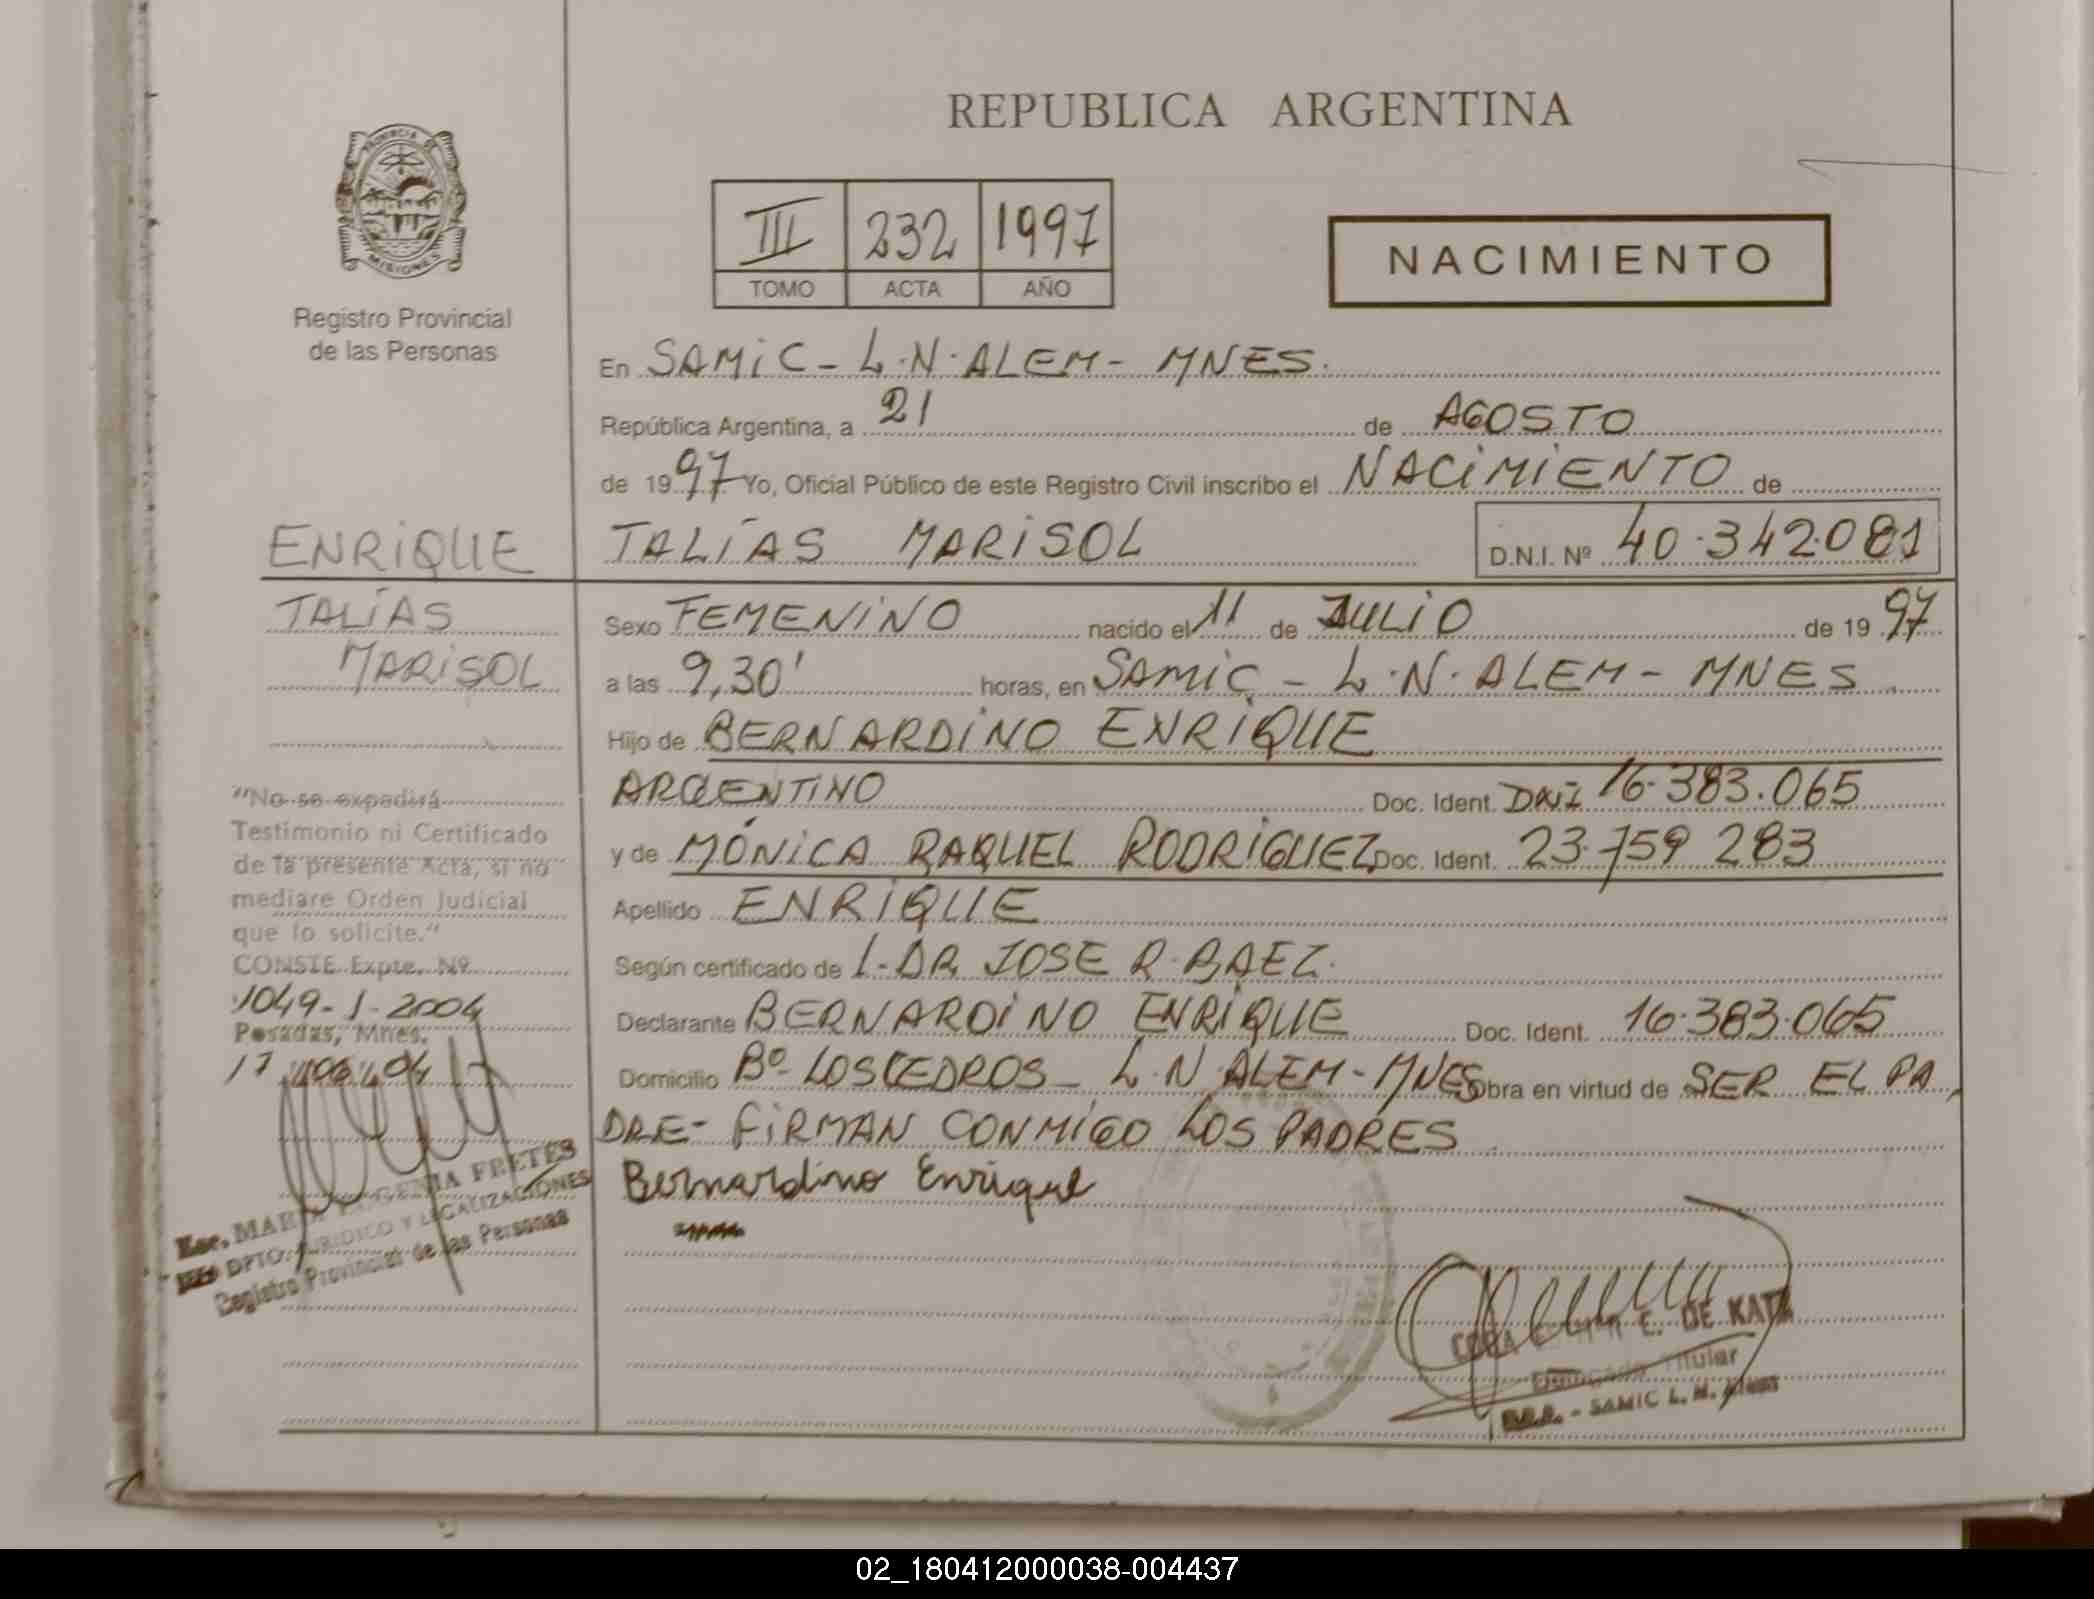 REPUBLICA ARGENTINA
PROVINCIA DE
MISIONES
Registro Provincial
de las Personas
III 232 1997
TOMO ACTA AÑO
NACIMIENTO
En SAMIC - L.N. ALEM - MNES.
República Argentina, a 21 de AGOSTO
de 1997 Yo, Oficial Público de este Registro Civil inscribo el NACIMIENTO de
ENRIQUE
TALÍAS MARISOL D.N.I. Nº 40.342.081
TALÍAS
MARISOL
Sexo FEMENINO nacido el 11 de JULIO de 1997
a las 9,30' horas, en SAMIC - L.N. ALEM - MNES
Hijo de BERNARDINO ENRIQUE
ARGENTINO Doc. Ident. DNI 16.383.065
y de MÓNICA RAQUEL RODRÍGUEZ Doc. Ident. 23.759 283
Apellido ENRIQUE
Según certificado de L. DR JOSE R. BAEZ.
Declarante BERNARDINO ENRIQUE Doc. Ident. 16.383.065
Domicilio Bº LOS CEDROS - L.N. ALEM - MNES Obra en virtud de SER EL PA
DRE - FIRMAN CONMIGO LOS PADRES
Bernardino Enrique
"No se expedirá
Testimonio ni Certificado
de la presente Acta, si no
mediare Orden Judicial
que lo solicite."
CONSTE Expte. Nº
1049-1-2004
Posadas, Mnes.
17 06 04
Esc. MARIA EUGENIA FRETES
DPTO. JURIDICO Y LEGALIZACIONES
Registro Provincial de las Personas
E. DE KATZ
Titular
SAMIC L. N.
02_180412000038-004437